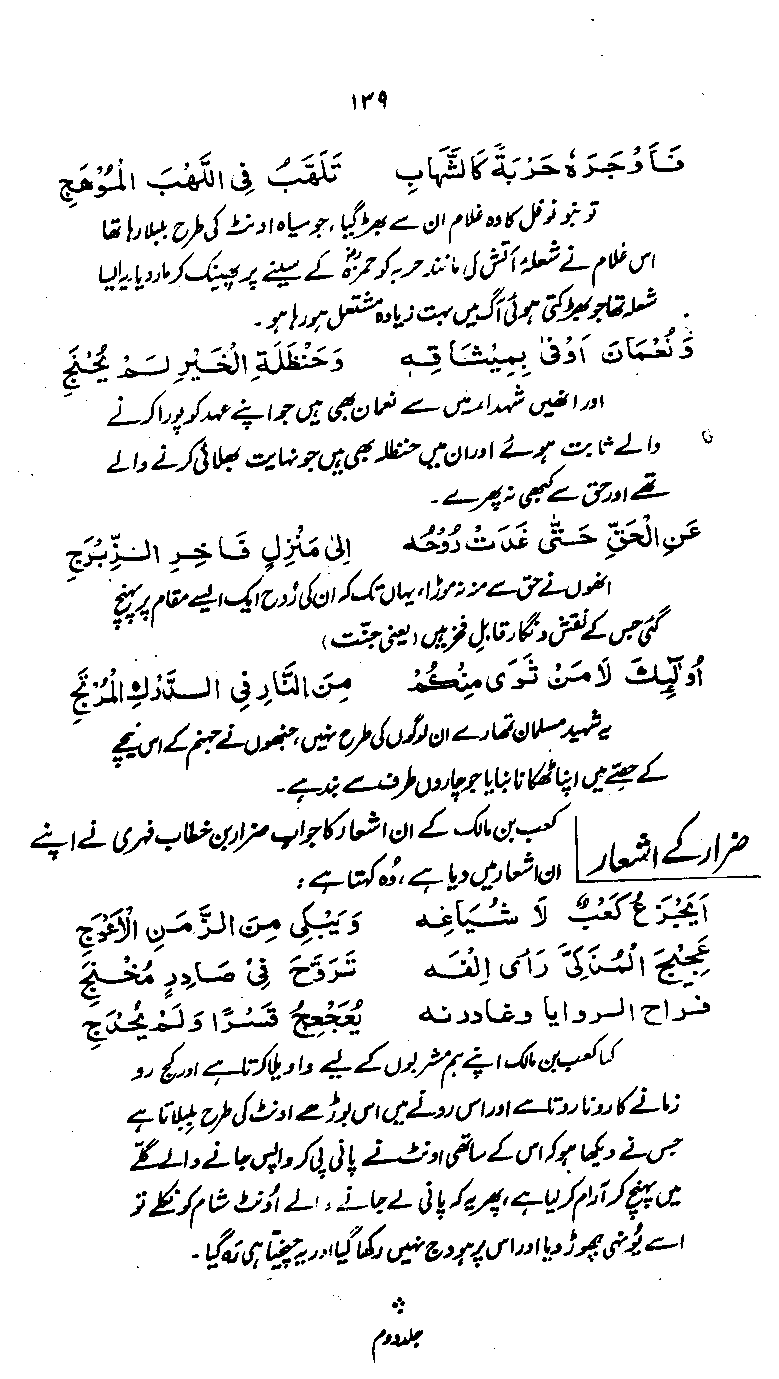 ۱۳۹
فَأَوْجَرَهُ حَرْبَةً كَالشَّهَابِ تَلَهَّبُ فِی اللَّهَبِ الْمُوْهَجِ
تو بنو نوفل کا وہ غلام ان سے بھڑ گیا، جو سیاہ اونٹ کی طرح بلبلا رہا تھا
اس غلام نے شعلۂ آتش کی مانند حربہ کو حمزہؓ کے سینے پر پھینک کر مار دیا۔ یہ ایسا
شعلہ تھا جو بھڑکتی ہوئی آگ میں بہت زیادہ مشتعل ہو رہا ہو۔
وَنُعْمَانَ اَوْفٰی بِمِیْثَاقِهٖ وَحَنْظَلَةِ الْخَیْرِ لَمْ یُحْنَجِ
اور انھیں شہدا میں سے نعمان بھی ہیں جو اپنے عہد کو پورا کرنے
والے ثابت ہوئے اور ان میں حنظلہ بھی ہیں جو نہایت بھلائی کرنے والے
تھے اور حق سے کبھی نہ پھرے۔
عَنِ الْحَقِّ حَتّٰی غَدَتْ رُوْحُهٗ اِلٰی مَنْزِلٍ فَاخِرِ الزِّبْرَجِ
انھوں نے حق سے منہ نہ موڑا، یہاں تک کہ ان کی رُوح ایک ایسے مقام پر پہنچ
گئی جس کے نقش و نگار قابلِ فخر ہیں (یعنی جنّت)
اُولٰٓئِكَ لَا مَنْ ثَوَی مِنْكُمْ مِنَ النَّارِ فِی الدَّرَكِ الْمُرْتَجِ
یہ شہید مسلمان تمھارے ان لوگوں کی طرح نہیں، جنھوں نے جہنم کے اس نیچے
کے حصّے میں اپنا ٹھکانا بنایا جو چاروں طرف سے بند ہے۔
ضرار کے اشعار
کعب بن مالک کے ان اشعار کا جواب ضرار بن خطاب فہری نے اپنے
ان اشعار میں دیا ہے، وُہ کہتا ہے:
اَیَجْزَعُ كَعْبٌ لَا شْیَاعِهٖ وَیَبْكِی مِنَ الزَّمَنِ الْاَعْوَجِ
عَجِیْجَ الْمُذَكِّیْ رَاٰی اِلْفَهٗ تَرَوَّحَ فِیْ صَادِرٍ مُحْنَجِ
فراح الروایا وغادرنه یُعَجْعِجُ قَسْرًا وَلَمْ یُحْدَجِ
کیا کعب بن مالک اپنے ہم مشربوں کے لیے واویلا کرتا ہے اور کج رو
زمانے کا رونا روتا ہے اور اس رونے میں اس بوڑھے اونٹ کی طرح بلبلاتا ہے
جس نے دیکھا ہو کہ اس کے ساتھی اونٹ نے پانی پی کر واپس جانے والے گلّے
میں پہنچ کر آرام کر لیا ہے، پھر یہ کہ پانی لے جانے والے اُونٹ شام کو نکلے تو
اسے یُونہی چھوڑ دیا اور اس پر ہودج نہیں رکھا گیا اور یہ چیختا ہی رہ گیا۔
جلد دوم